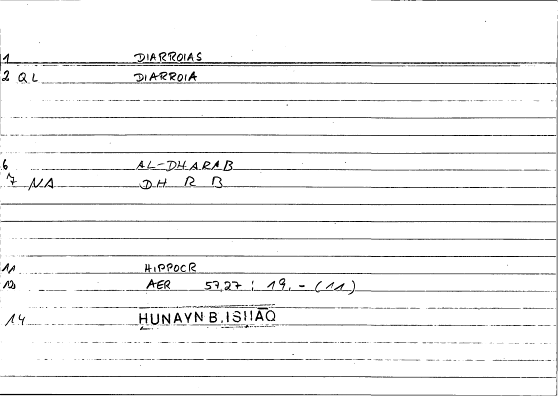 1 DIARROIAS
2 QL DIARROIA
6 AL-DHARAB
7 NA DH R B
11 HIPPOCR
12 AER 57,27 ; 19. - (11)
14 HUNAYN B. ISHAQ